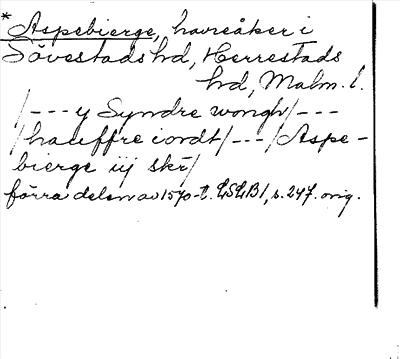 * Aspebierge, havreåker i
Sövestads hd, Herrestads
hd, Malm. l.
/--- y Syndre wongh/---
/hauffre iordt/---/Aspe-
bierge iij skr̄/
förra delen av 1570-t. LSLB1, s. 247. orig.